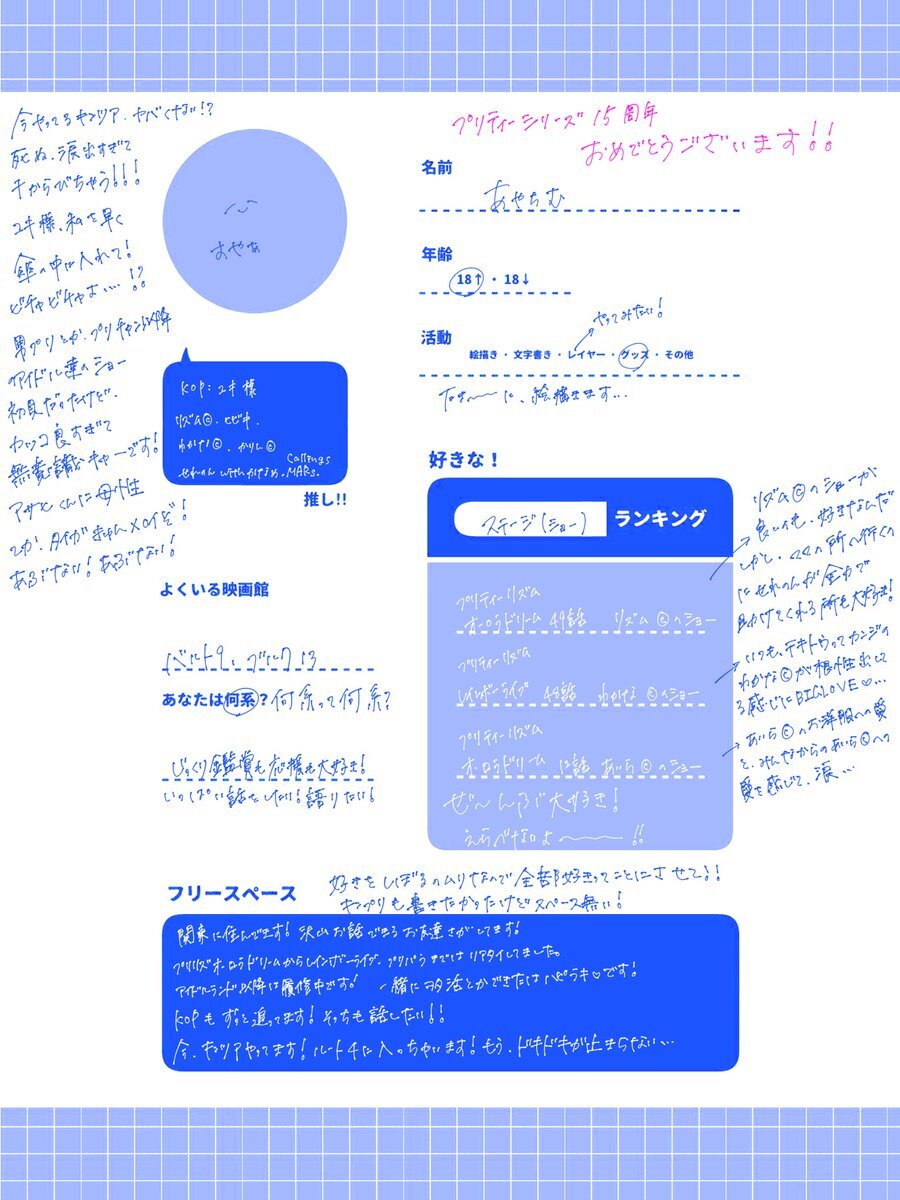 プリティーシリーズ 15周年
おめでとうございます!!
今やってるキンツア、ヤバくない!?
死ぬ、涙出すぎて
干からびちゃう!!!
ユキ様、私を早く
傘の中に入れて!
ビチャビチャよ…!?
男プリとか、プリチャン以降
アイドル達のショー
初見だったけど、
カッコ良すぎて
無意識キャーです!
アサヒくんに母性
とか、タイガきゅんメロイぞ!
あぶない!あぶない!
おやぁ
KOP:ユキ様
リズム©、ヒビキ、
わかな©、かりん©
せれのん with かなめ、Callings
MARs.
推し!!
よくいる映画館
バルト9、ブルク13
あなたは何系?何系って何系?
じっくり鑑賞も応援も大好き!
いっぱい話をしたい!語りたい!
名前
あやちむ
年齢
18↑・18↓
やってみたい!
活動
絵描き・文字書き・レイヤー・グッズ・その他
たま〜に、絵描きます…
好きな!
ステージ(ショー) ランキング
プリティーリズム
オーロラドリーム 49話 リズム©のショー
プリティーリズム
レインボーライブ 48話 わかな©のショー
プリティーリズム
オーロラドリーム 12話 あいら©のショー
ぜ〜んぶ大好き!
えらべないよ〜!!
リズム©のショーが
良いのも、好きなんだ
しかし、ママの所へ行くの
にせれのんが全力で
助けてくれる所も大好き!
いつも、テキトウってカンジの
わかな©が根性出して
る感じにBIGLOVE♡…
あいら©のお洋服への愛
と、みんなからのあいら©への
愛を感じて、涙…
フリースペース
好きをしぼるのムリなので全部好きってことにさせて!!
キンプリも書きたかったけどスペース無い!
関東に住んでます!沢山お話できるお友達さがしてます!
プリリズオーロラドリームからレインボーライブ、プリパラまではリアタイしてました。
アイドルランド以降は履修中です! 一緒にヲタ活とかできたらハピラキ♡です!
KOPもずっと追ってます!そっちも話したい!!
今、キンツアやってます!ルート4に入っちゃいます!もう、ドキドキが止まらない…